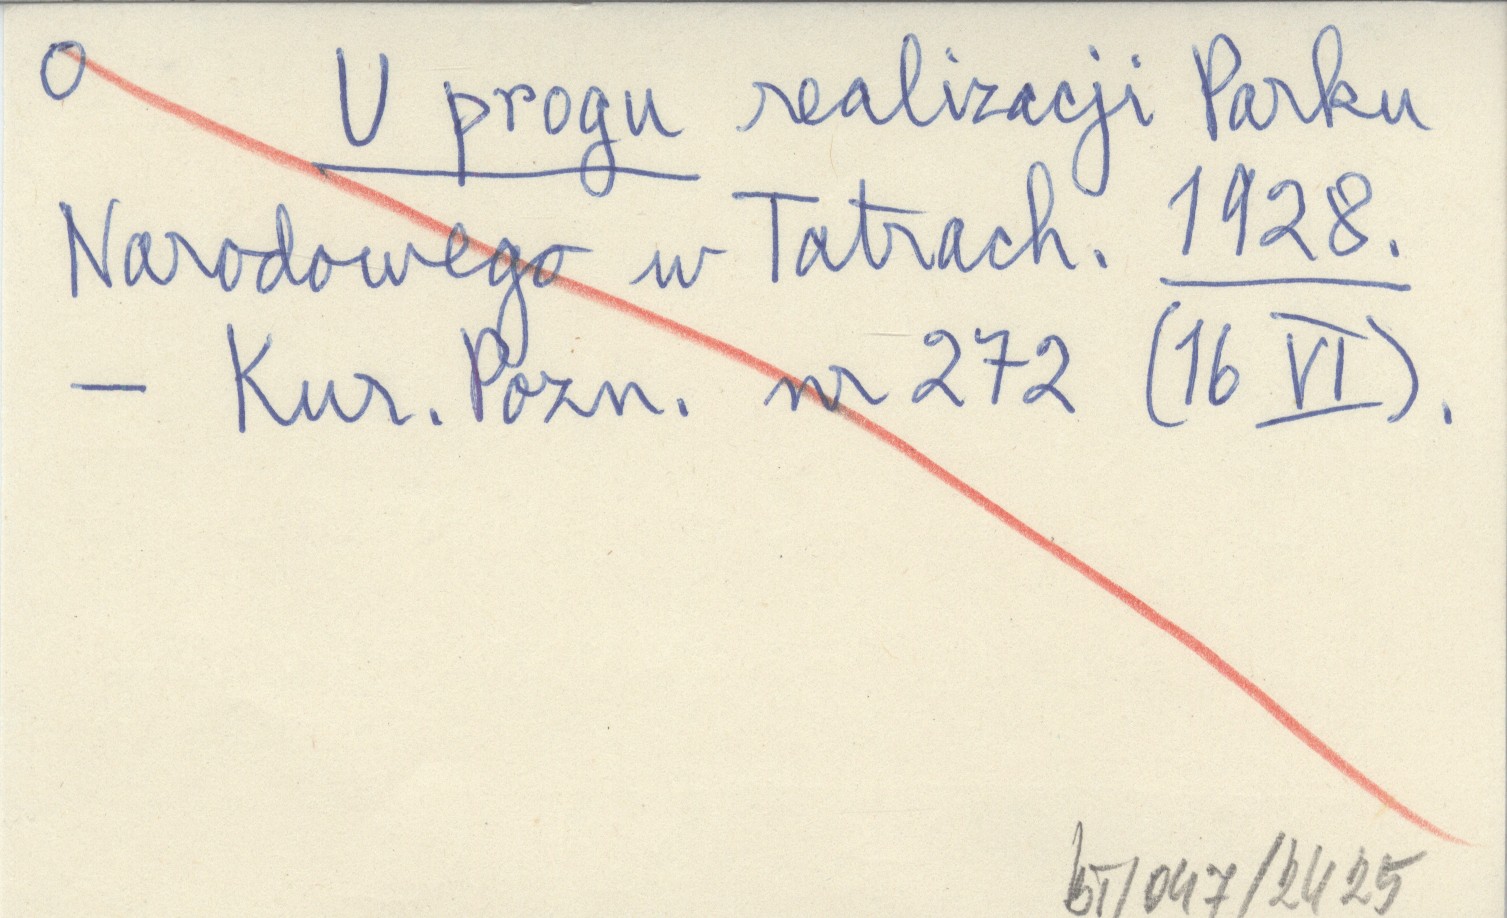 O U progu realizacji Parku
Narodowego w Tatrach. 1928.
– Kur. Pozn. nr 272 (16 VI).
bT/047/2425